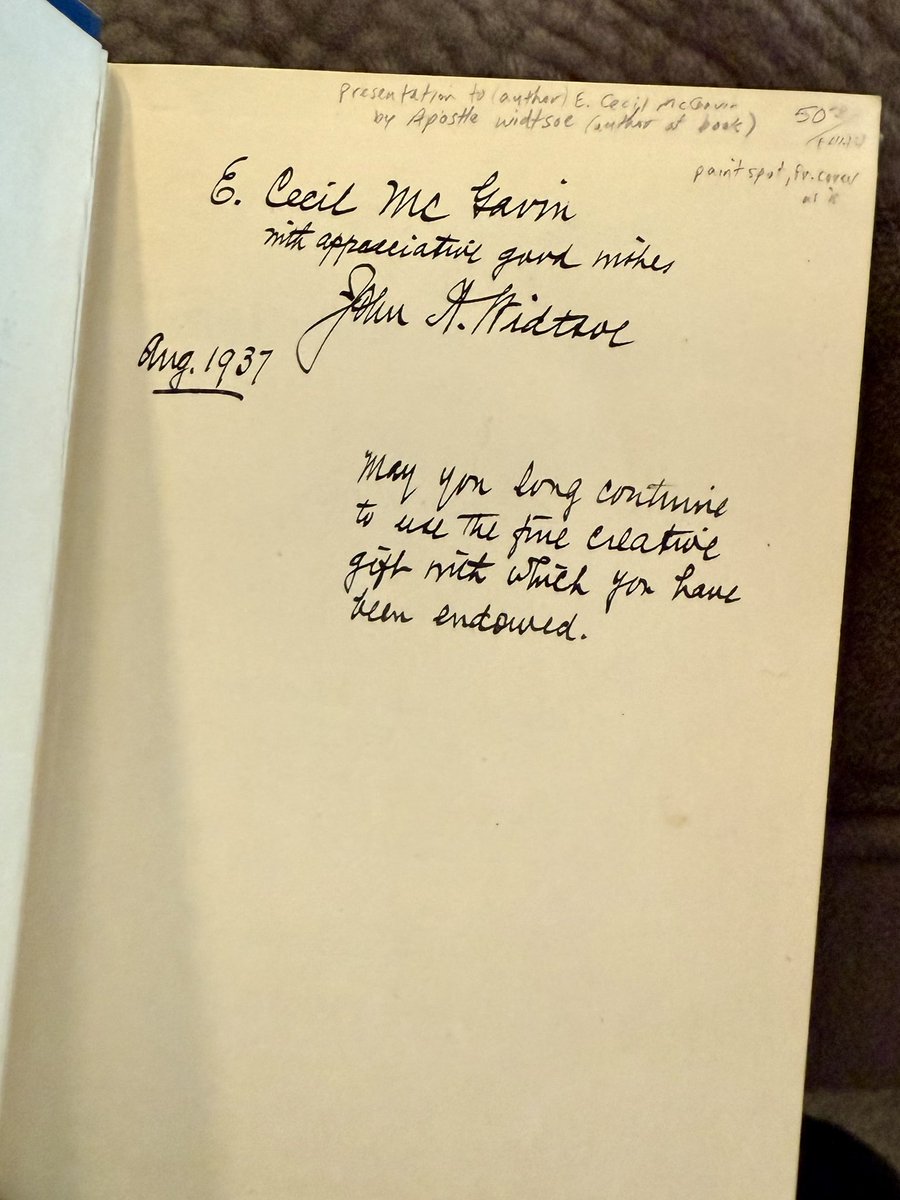 presentation to (author) E. Cecil McGavin
by Apostle Widtsoe (author of book)
50
paint spot, fr. cover
E. Cecil Mc Gavin
with appreciative good wishes
John A. Widtsoe
Aug. 1937
May you long continue
to use the fine creative
gift with which you have
been endowed.